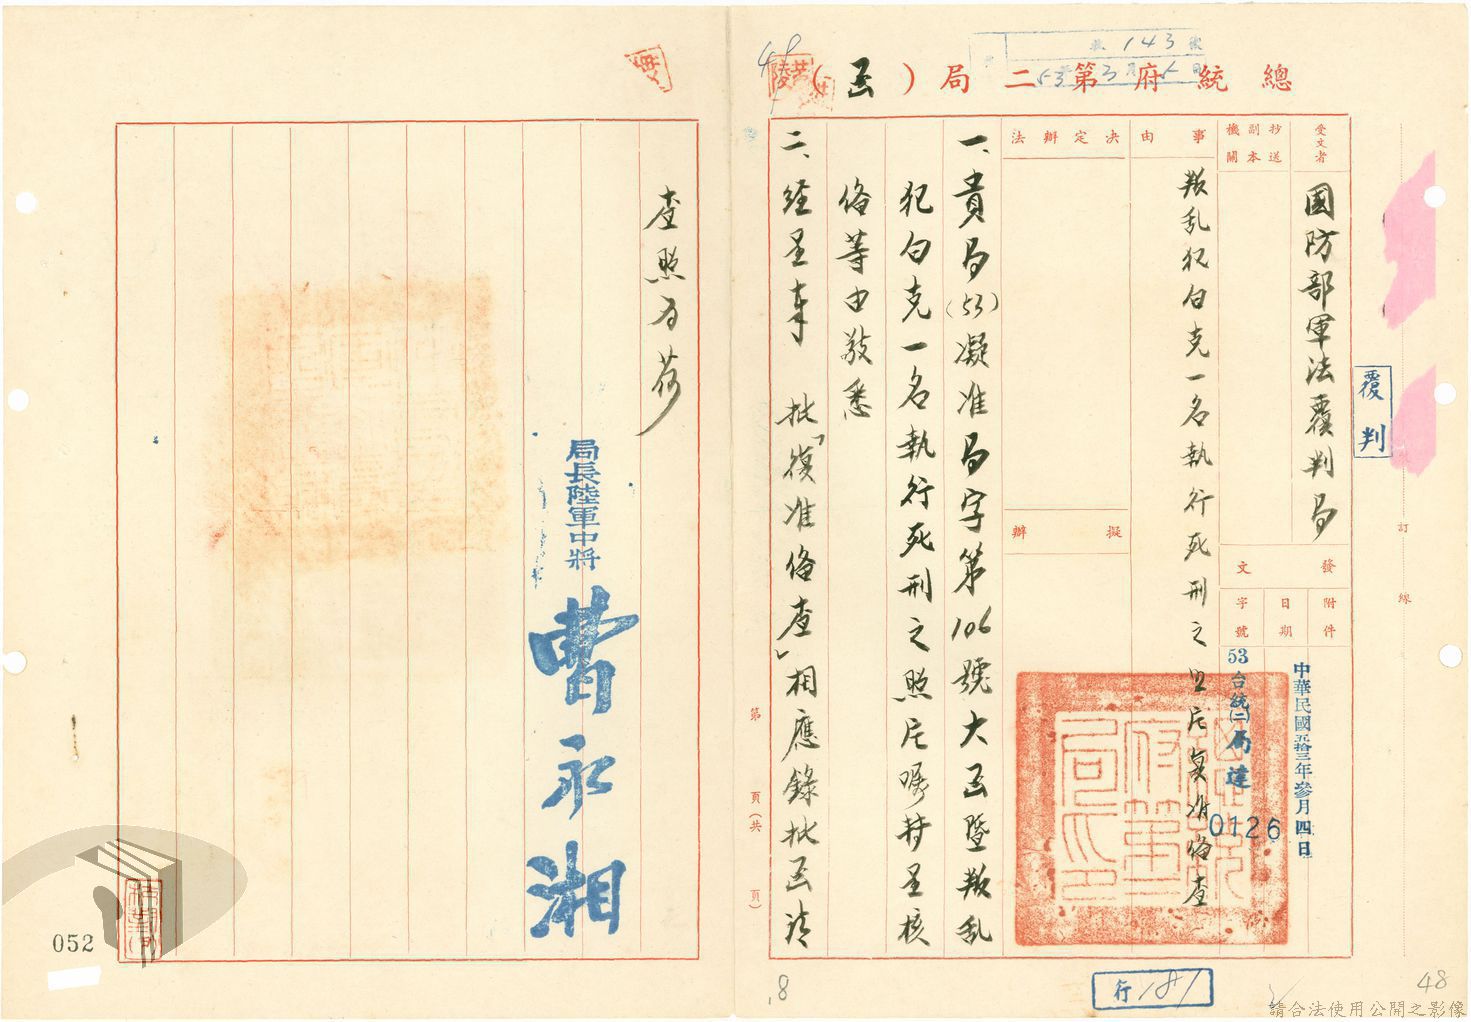 總統府第二局（函）
收 143 號
53年3月5日
受文者
國防部軍法覆判局
抄送副本機關
發文
附件
日期
字號
中華民國五拾三年參月四日
53台統(二)局達
0126
事由
叛乱犯白克一名執行死刑之照片奠准俻查
決定辦法
擬辦
一、貴局(53)凝准局字第106號大函暨叛乱
犯白克一名執行死刑之照片嘱轉呈核
俻等由敬悉
二、經呈奉　批「復准俻查」相應錄批函請
查照為荷
局長陸軍中將
曹永湘
覆判
訂線
第　頁（共　頁）
行181
48
052
請合法使用公開之影像